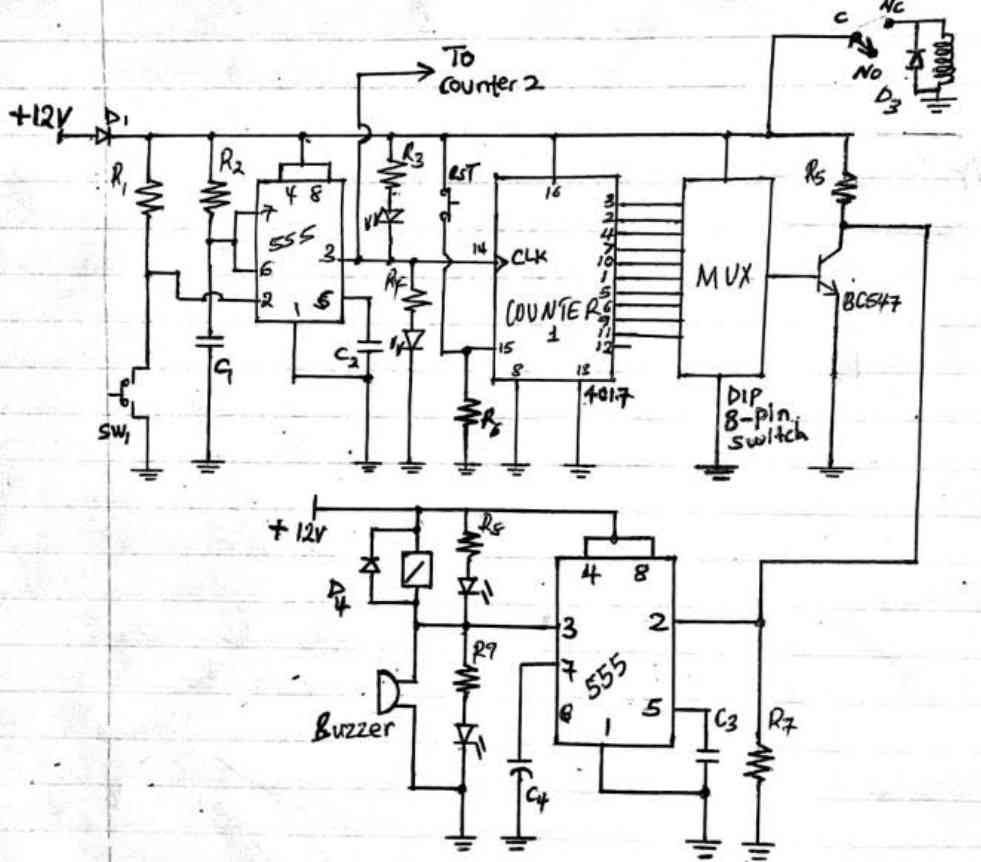 C
NC
NO
D3
To
Counter 2
+12V
D1
R1
R2
4 8
7
555
3
6
2
1
5
C1
C2
SW1
R3
R4
RST
16
14
CLK
COUNTER
1
15
8
13
4017
3
2
4
7
10
1
5
6
9
11
12
R6
MUX
DIP
8-pin
switch
R5
BC547
+12V
D4
R8
R9
Buzzer
4 8
3
2
7
555
6
5
1
C3
C4
R7